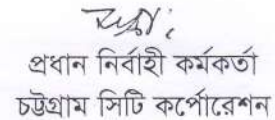 প্রধান নির্বাহী কর্মকর্তা
চট্টগ্রাম সিটি কর্পোরেশন